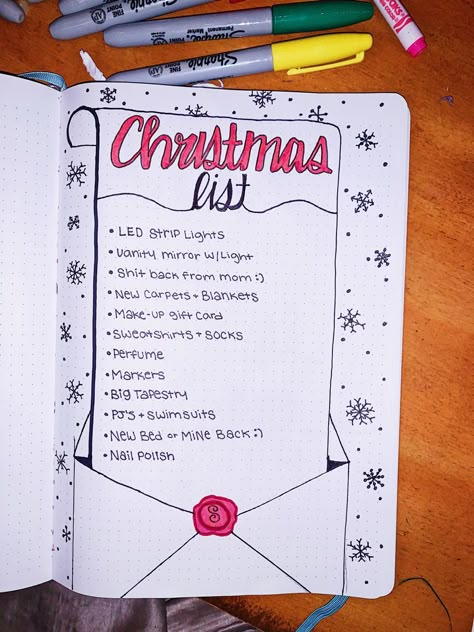 Sharpie
FINE POINT
Sharpie
FINE POINT
Sharpie
Christmas
list
• LED Strip Lights
• Vanity mirror w/Light
• Shit back from mom :)
• New Carpets + Blankets
• Make-up gift card
• Sweatshirts + socks
• Perfume
• Markers
• Big Tapestry
• PJ's + swimsuits
• New Bed or Mine Back :)
• Nail polish
S